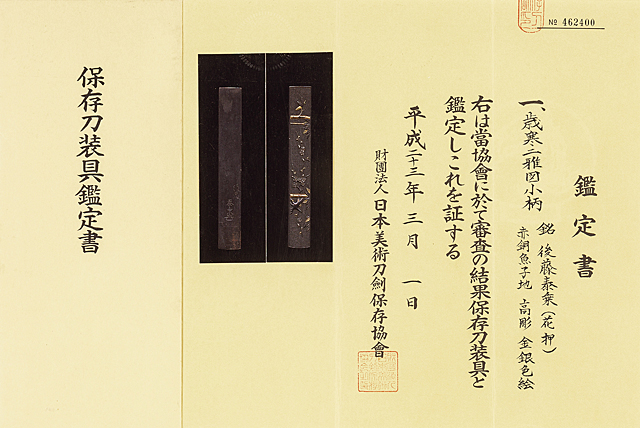 № 462400
鑑定書
一、歳寒二雅図小柄
銘 後藤泰乗(花押)
赤銅魚子地 高彫 金銀色絵
右は當協會に於て審査の結果保存刀装具と
鑑定しこれを証する
平成二十三年三月一日
財團法人日本美術刀劍保存協會
保存刀装具鑑定書